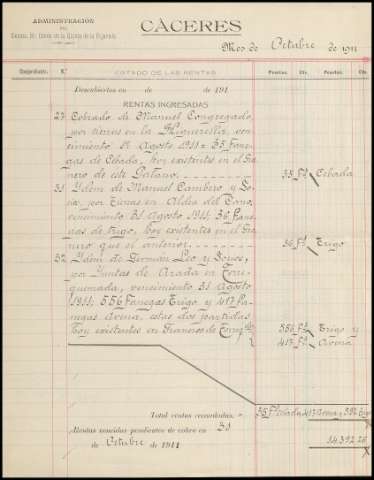 ADMINISTRACIÓN
CÁCERES
Mes de Octubre de 1911
Comprobante. N.º ESTADO DE LAS RENTAS Pesetas Cts. Pesetas Cts.
Descubiertos en de de 191
RENTAS INGRESADAS
27 Cobrado de Manuel Congregado,
por tierras en la Higuerilla, ven-
cimiento 15 Agosto 1911 = 35 Fane-
gas de Cebada, hoy existentes en el Gra
nero de este Palacio 35 Fs Cebada
31 Ydem de Manuel Cambero y So-
cios, por tierras en Aldea del Cano,
vencimiento 31 Agosto 1911, 36 Fa-
negas de trigo, hoy existentes en el Gra
nero que el anterior. 36 Fs Trigo
32 Ydem de Germán Leo y Socios,
por Yuntas de Arada en Torre-
quemada, vencimiento 31 Agosto
1911, 556 Fanegas Trigo y 417 Fa-
negas Avena, estas dos partidas
hoy existentes en 556 Fs Trigo y
417 Fs Avena
Total rentas recaudadas. 35 Fs Cebada, 417 Avena y 592 Trigo
Rentas vencidas pendientes de cobro en 31
de Octubre de 1911 14.392 26